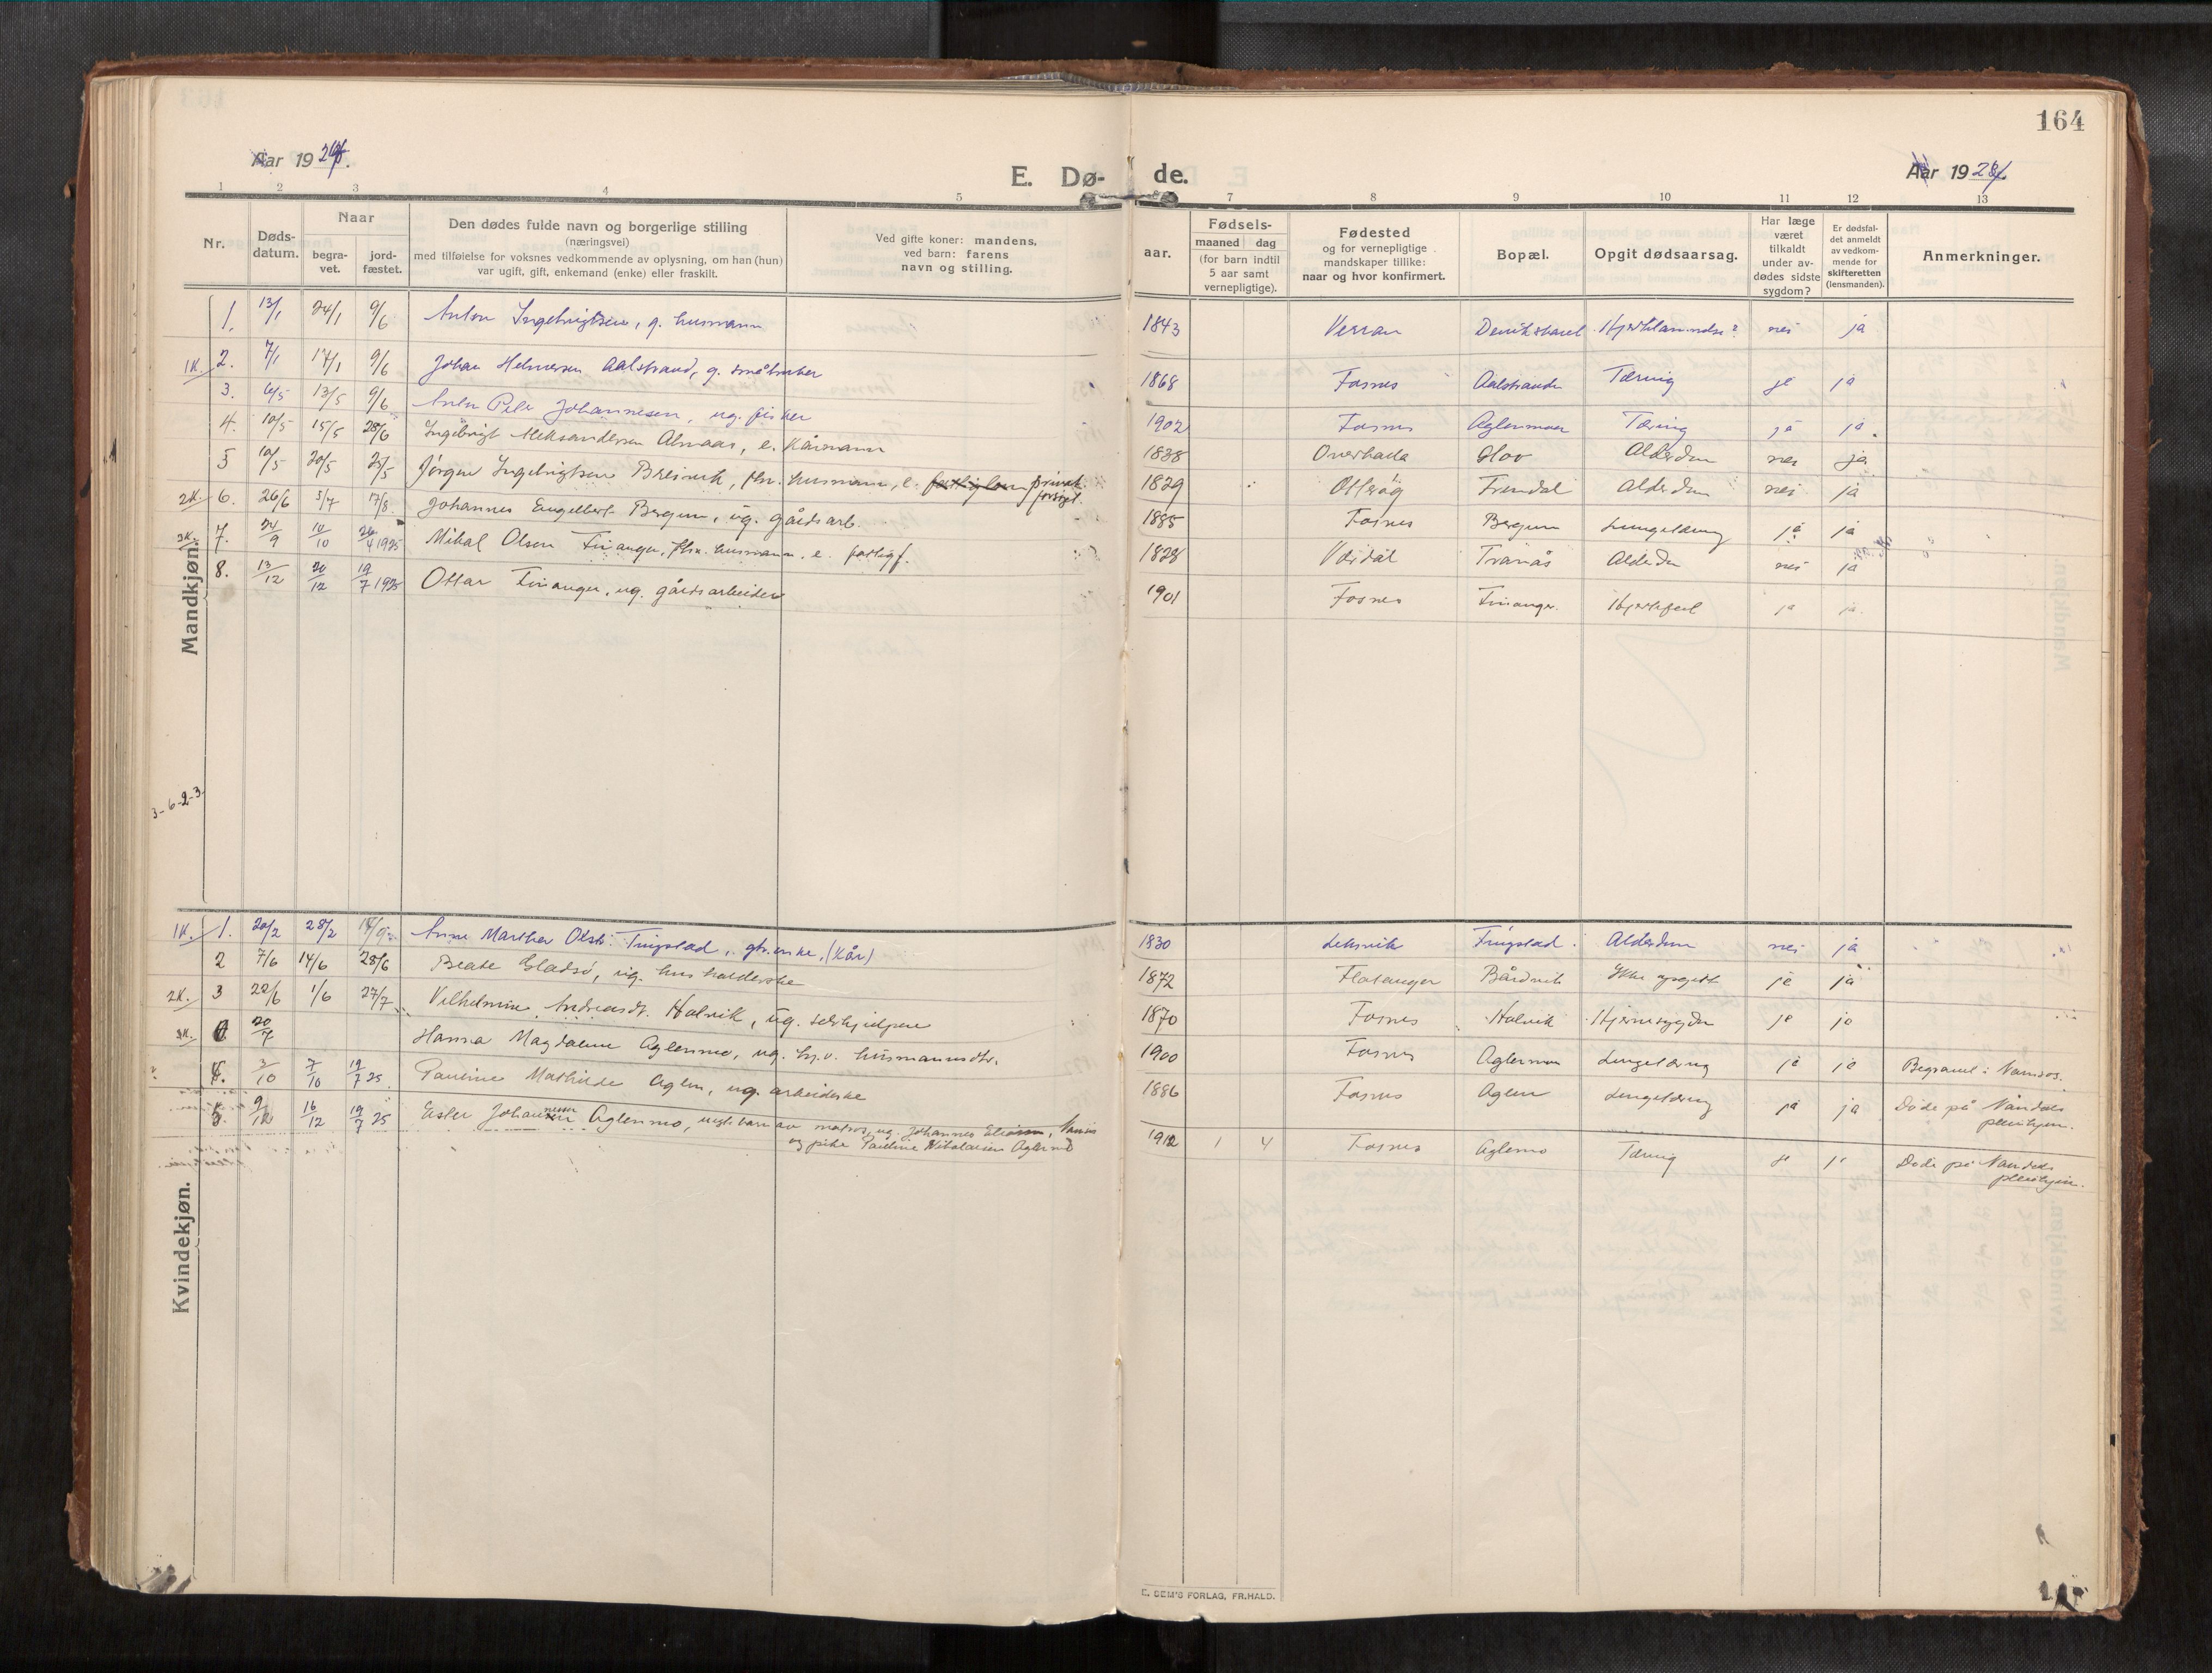 164
Aar 1924.
E. Dø-
de.
Aar 1924.
1 2 3 4 5
7 8 9 10 11 12 13
Nr.
Døds-
datum.
Naar
begra-
vet.
jord-
fæstet.
Den dødes fulde navn og borgerlige stilling
(næringsvei)
med tilføielse for voksnes vedkommende av oplysning, om han (hun)
var ugift, gift, enkemand (enke) eller fraskilt.
Ved gifte koner: mandens,
ved barn: farens
navn og stilling.
aar.
Fødsels-
maaned dag
(for barn indtil
5 aar samt
vernepligtige).
Fødested
og for vernepligtige
mandskaper tillike:
naar og hvor konfirmert.
Bopæl.
Opgit dødsaarsag.
Har læge
været
tilkaldt
under av-
dødes sidste
sygdom?
Er dødsfal-
det anmeldt
av vedkom-
mende for
skifteretten
(lensmanden).
Anmerkninger.
Mandkjøn.
1. 13/1 24/1 9/6 Anton Ingebrigtsen, g. husmann 1843 Verran nei ja
1K. 2. 7/1 17/1 9/6 Johan Helmersen Aalstrand, g. småbruker 1868 Fosnes Aalstranda Tæring ja ja
3. 6/5 13/5 9/6 Anton Peder Johannesen, ug. fisker 1902 Fosnes Aglenmoen Tæring ja ja.
4. 10/5 15/5 28/6 Ingebrigt Aleksandersen Almaas, e. kårmann 1838 Overhalla Glov Alderdom nei ja
5 10/5 20/5 25/5 Jørgen Ingebrigtsen Breivik, fhv. husmann, e. fattiglem privat forsørget. 1829 Otterøy Fremdal Alderdom nei ja
2K. 6. 26/6 3/7 17/8. Johannes Engelbert Bergum, ug. gårdsarb. 1885 Fosnes Bergum Lungetæring ja ja
3K. 7. 24/9 10/10 26/4 1925 Mikal Olsen Finanger, fhv. husmann, e. fattigf. 1828 Værdal Tranås Alderdom nei ja
8. 13/12 20/12 19/7 1925 Ottar Finanger, ug. gårdsarbeider 1901 Fosnes Finanger. Hjertefeil ja ja.
3-6-2-3
Kvindekjøn.
1K. 1. 20/2 28/2 Anne Marthea Olsdt. Tingstad, gbr.enke, (kår) 1830 Leksvik Tingstad. Alderdom nei ja
2 7/6 14/6 28/6 Beate Gladsø, ug. husholderske 1872 Flatanger Bårdvik Ikke opgidt ja ja
2K. 3 22/6 1/6 27/7 Vilhelmine Andreasdt. Halvik, ug. selvhjulpen 1870 Fosnes Halvik Hjernesygdom ja ja
3K. 20/7 Hanna Magdalene Aglenmo, ug. hj.v. husmannsdtr. 1900 Fosnes Aglenmoen Lungetæring ja ja Begravet i Namsos.
4. 3/10 7/10 19/7 25. Pauline Mathilde Aglen, ug. arbeiderske 1886 Fosnes Aglen Lungetæring ja ja Døde på Namdals pleiehjem.
5. 9/12 16/12 19/7 25 Ester Johannessen Aglenmo, uegte barn av matros, ug. Johannes
og pike Pauline Nikolaisen Aglenmo 1912 1 4 Fosnes Aglenmo Tæring ja ja Døde på Namdals pleiehjem.
E. SEM'S FORLAG, FR.HALD.